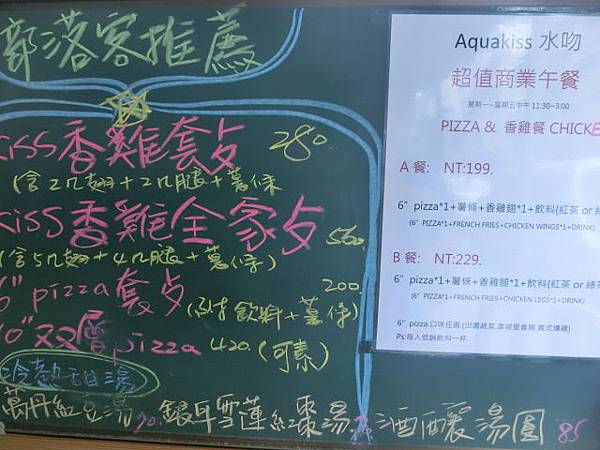 部落客推薦
kiss香雞套点 280
(含2爪翅+2爪腿+薯条
kiss香雞全家点 560.
(含5爪翅+4爪腿+薯條)
6"pizza套点 200.
(附飲料+薯條)
10"双層pizza 420.(可素)
冷熱甜湯
萬丹紅豆湯 70. 銀耳雪蓮紅棗湯. 酒釀湯圓 85
Aquakiss 水吻
超值商業午餐
星期一~星期五中午 11:30~3:00
PIZZA & 香雞餐 CHICKE
A 餐: NT:199.
6" pizza*1+薯條+香雞翅*1+飲料(紅茶 or 綠
(6" PIZZA*1+FRENCH FRIES+CHICKEN WINGS*1+DRINK)
B 餐: NT:229.
6" pizza*1+薯條+香雞腿*1+飲料(紅茶 or 綠
(6" PIZZA*1+FRENCH FRIES+CHICKEN LEGS*1+DRINK)
6" pizza 口味任選
Ps:每人低銷飲料一杯.